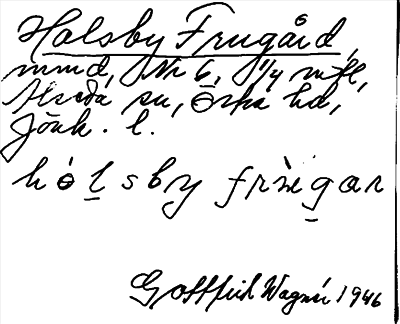 Holsby Frugård,
mmd, Nr 6, 1/4 mtl,
Alseda sn, Östra hd,
Jönk. l.
hòlsby frùgar
Gottfrid Wagnér 1946